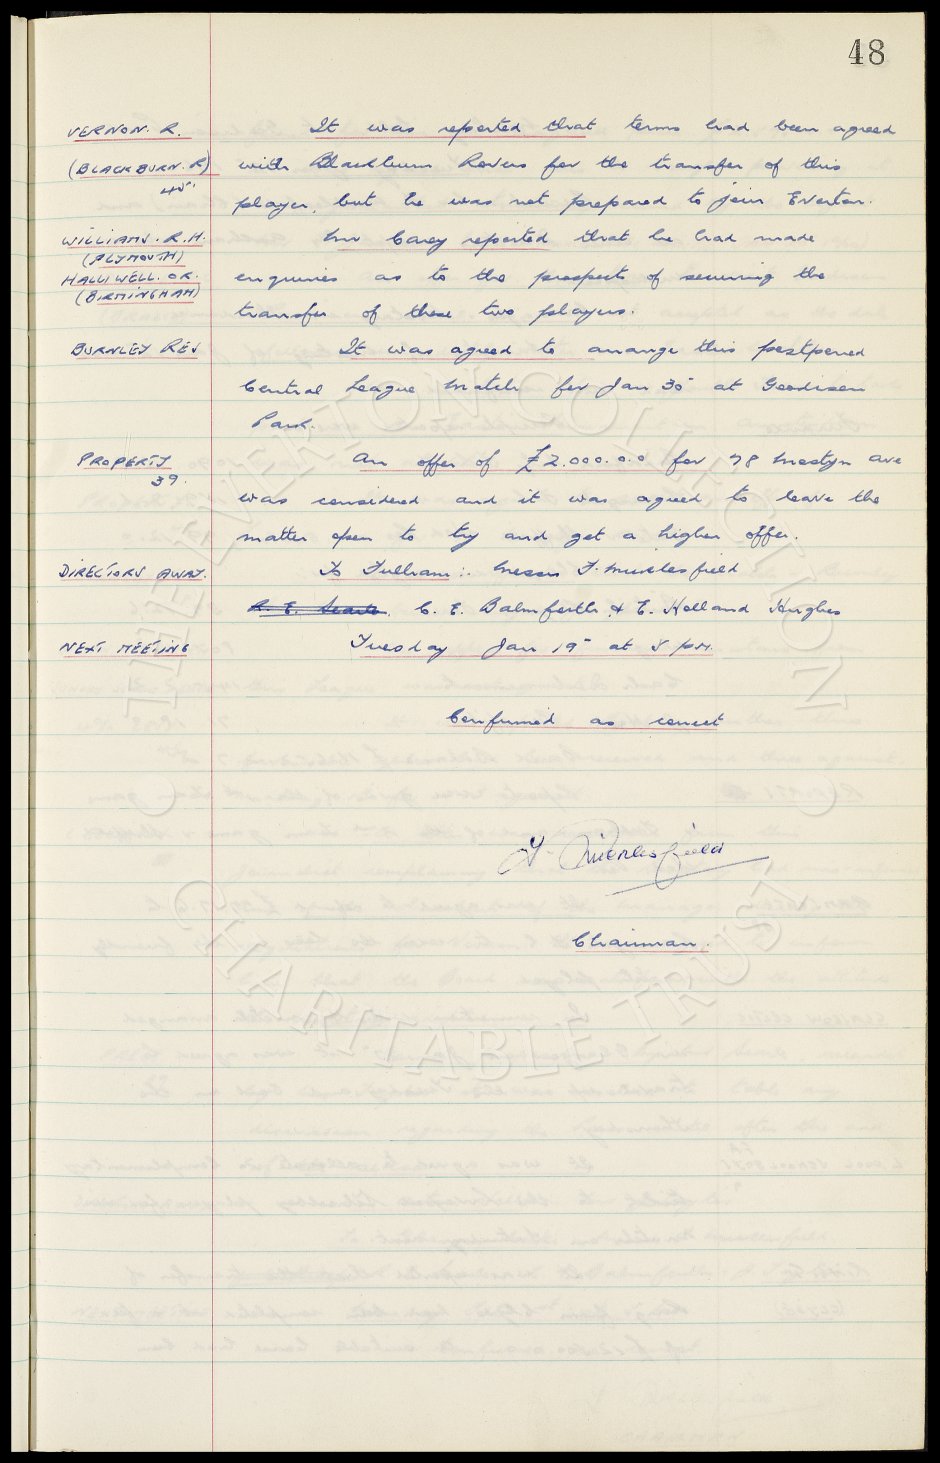 48
VERNON. R. It was reported that terms had been agreed
(BLACKBURN. R) with Blackburn Rovers for the transfer of this
45. player, but he was not prepared to join Everton.
WILLIAMS. R.H. Mr Carey reported that he had made
(PLYMOUTH)
HALLIWELL. OR. enquiries as to the prospects of securing the
(BIRMINGHAM)
transfer of these two players.
BURNLEY RES It was agreed to arrange this postponed
Central League match for Jan 30 at Goodison
Park.
PROPERTY An offer of £2.000.0.0 for 78 Mostyn ave
39. was considered and it was agreed to leave the
matter open to try and get a higher offer.
DIRECTORS AWAY. To Fulham:. Messrs F. Micklesfield
R. E. Searle. C. E. Balmforth & E. Holland Hughes
NEXT MEETING Tuesday Jan 19 at 5 p.m.
Confirmed as correct
F. Micklesfield
Chairman.
THE EVERTON COLLECTION
CHARITABLE TRUST